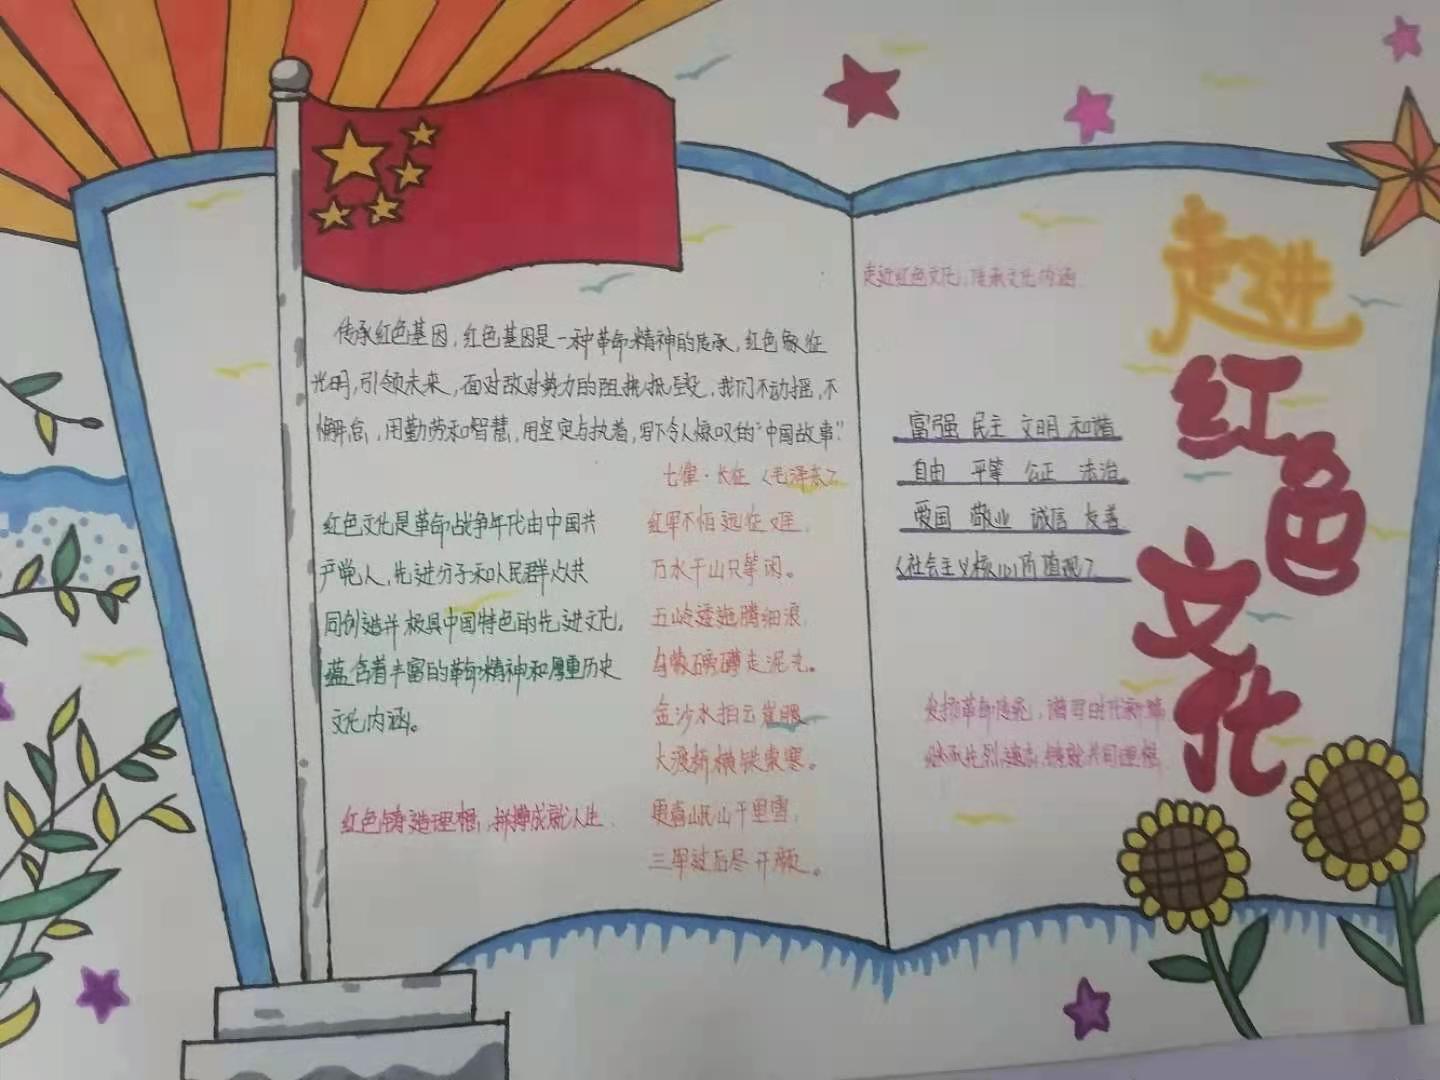 传承红色基因，红色基因是一种革命精神的传承，红色象征
光明，引领未来，面对敌对势力的阻挠抵毁，我们不动摇，不
懈怠，用勤劳和智慧，用坚定与执着，写下令人惊叹的“中国故事”
七律·长征《毛泽东》
红色文化是革命战争年代由中国共
产党人，先进分子和人民群众共
同创造并极具中国特色的先进文化，
蕴含着丰富的革命精神和厚重历史
文化内涵。
红军不怕远征难，
万水千山只等闲。
五岭逶迤腾细浪，
乌蒙磅礴走泥丸。
金沙水拍云崖暖，
大渡桥横铁索寒。
更喜岷山千里雪，
三军过后尽开颜。
红色铸造理想，拼搏成就人生
走近红色文化，传承文化内涵
走进
红色
文化
富强 民主 文明 和谐
自由 平等 公正 法治
爱国 敬业 诚信 友善
《社会主义核心价值观》
发扬革命传统，谱写时代新篇
继承先烈遗志，铸就共同理想